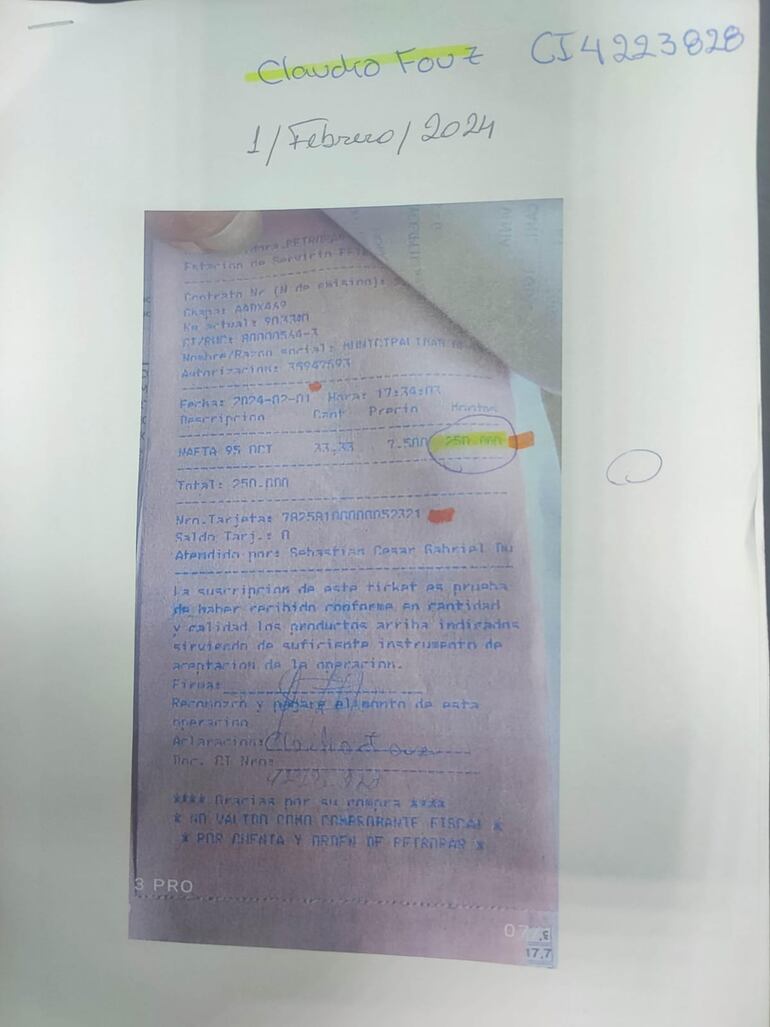 Claudio Fouz CI 4223828
1/Febrero/2024
PETROPAR
Estacion de Servicio
Contrato Nr (N de emision):
Chapa: AADX449
Km actual: 903300
CI/RUC: 80000564-3
Nombre/Razon social: MUNICIPALIDAD
Autorizacion: 35947593
Fecha: 2024-02-01 Hora: 17:34:03
Descripcion Cant Precio Montos
NAFTA 95 OCT 33,33 7.500 250.000
Total: 250.000
Nro.Tarjeta: 78258100000052321
Saldo Tarj.: 0
Atendido por: Sebastian Cesar Gabriel Du
La suscripcion de este ticket es prueba
de haber recibido conforme en cantidad
y calidad los productos arriba indicados
sirviendo de suficiente instrumento de
aceptacion de la operacion.
Firma:
Reconozco y pagare el monto de esta
operacion
Aclaracion: Claudio Fouz
Doc. CI Nro:
4223 828
**** Gracias por su compra ****
* NO VALIDO COMO COMPROBANTE FISCAL *
* POR CUENTA Y ORDEN DE PETROPAR *
3 PRO
07
17.7